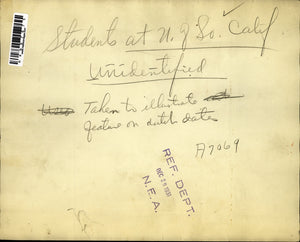 Students at U. of So. Calif
Unidentified
Taken to illustrate
feature on dutch dates
A7069
REF. DEPT.
N.E.A.